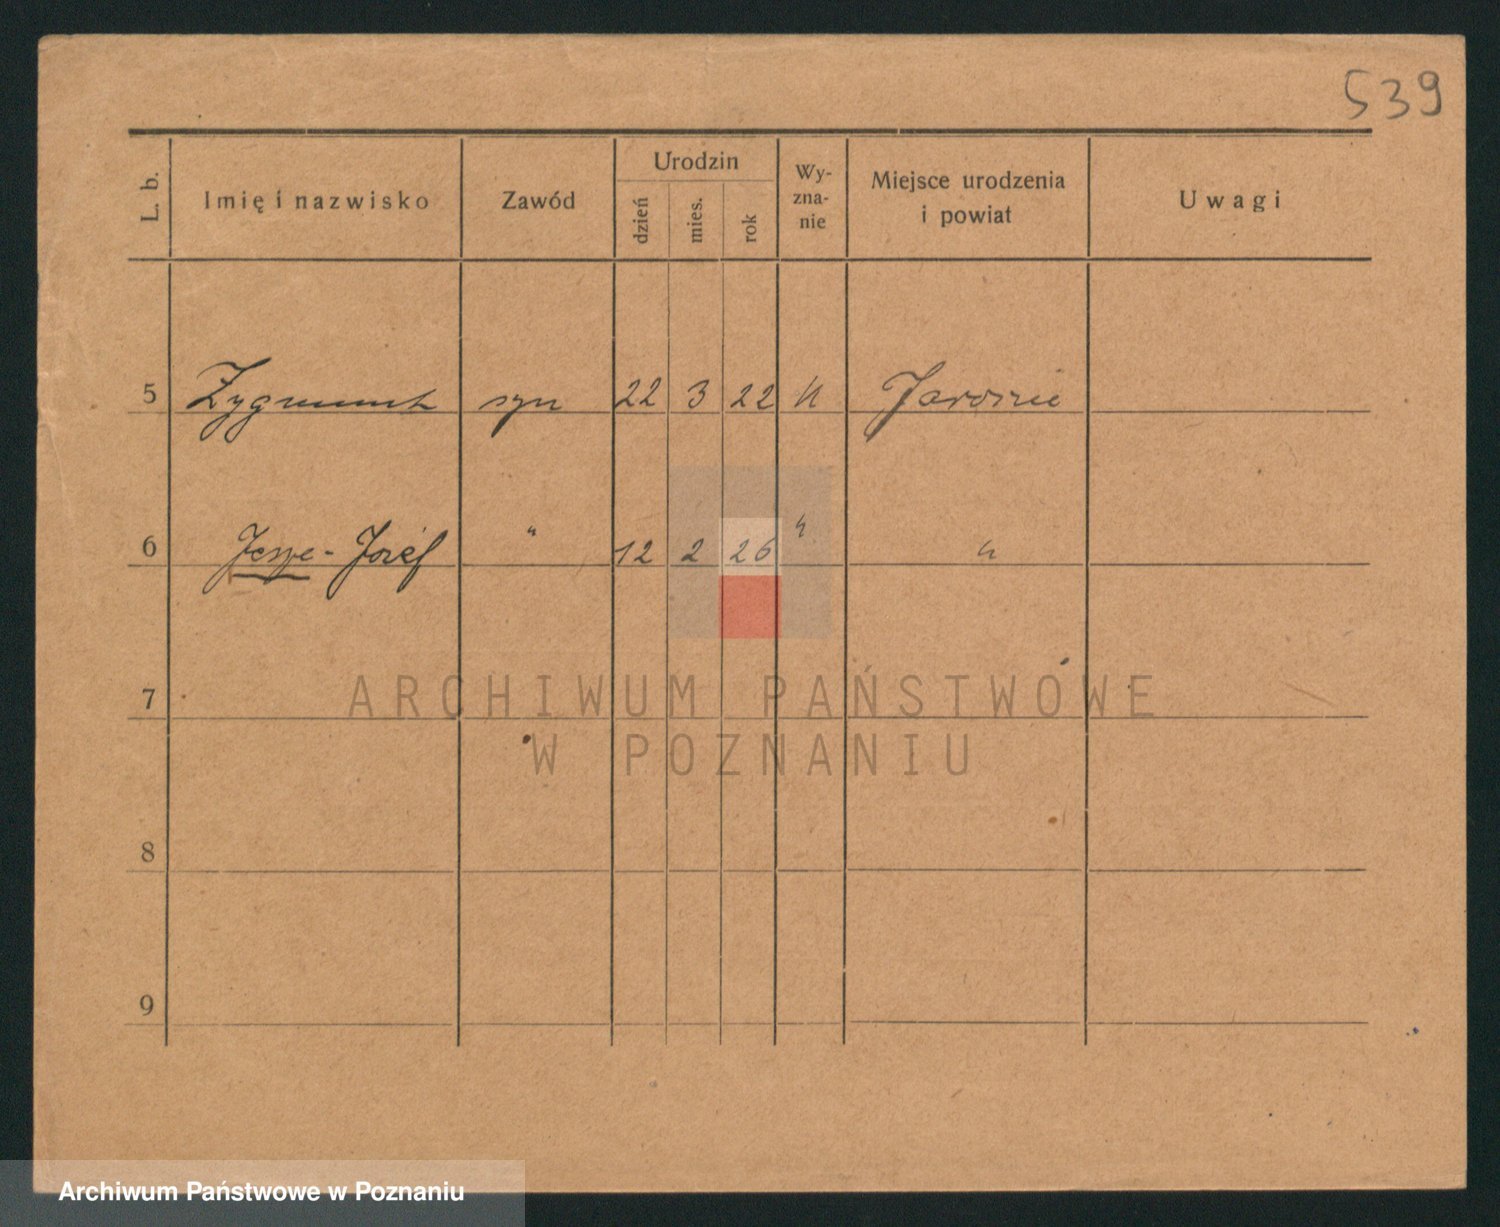 539
L. b. Imię i nazwisko Zawód Urodzin dzień mies. rok Wy-zna-nie Miejsce urodzenia i powiat Uwagi
5 Zygmunt syn 22 3 22 k
6 - Józef " 12 2 26 " "
7
8
9
ARCHIWUM PAŃSTWOWE
W POZNANIU
Archiwum Państwowe w Poznaniu